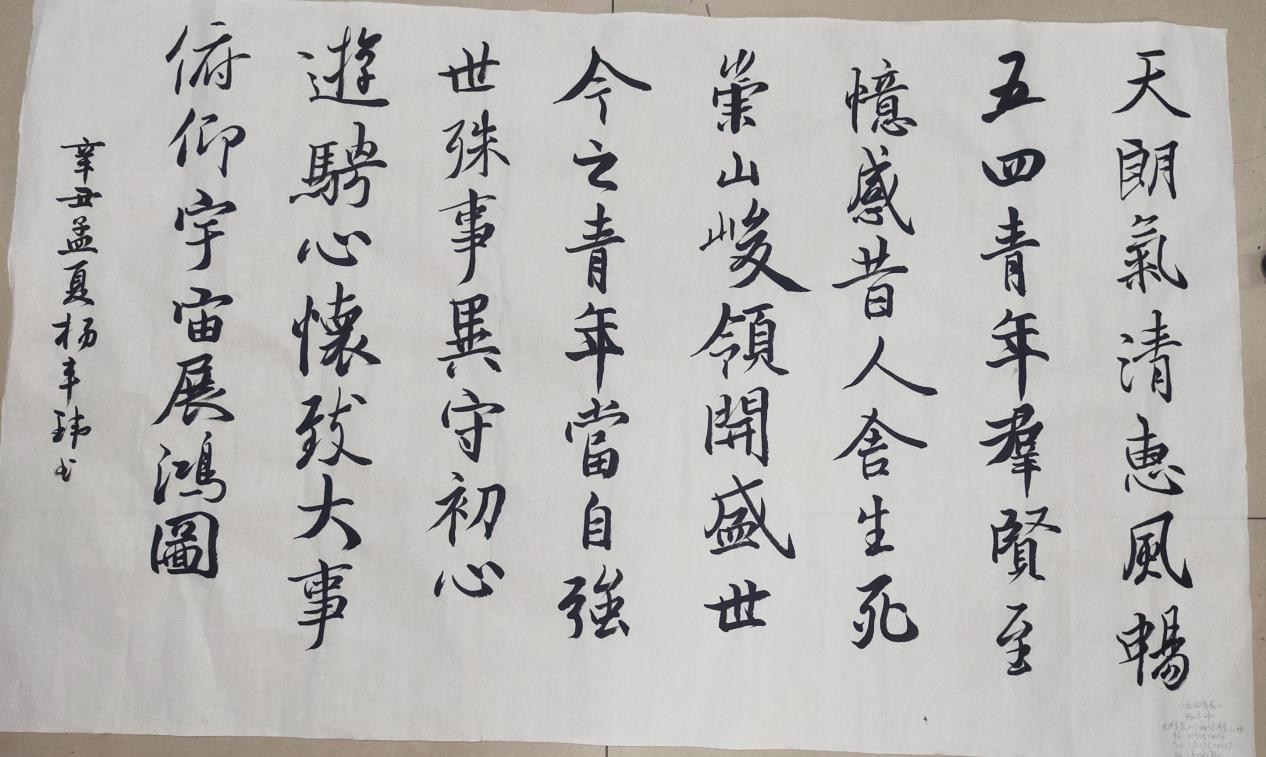 天朗氣清惠風暢
五四青年羣賢至
憶感昔人舍生死
崇山峻領開盛世
今之青年當自強
世殊事異守初心
遊騁心懷致大事
俯仰宇宙展鴻圖
辛丑孟夏杨丰玮书